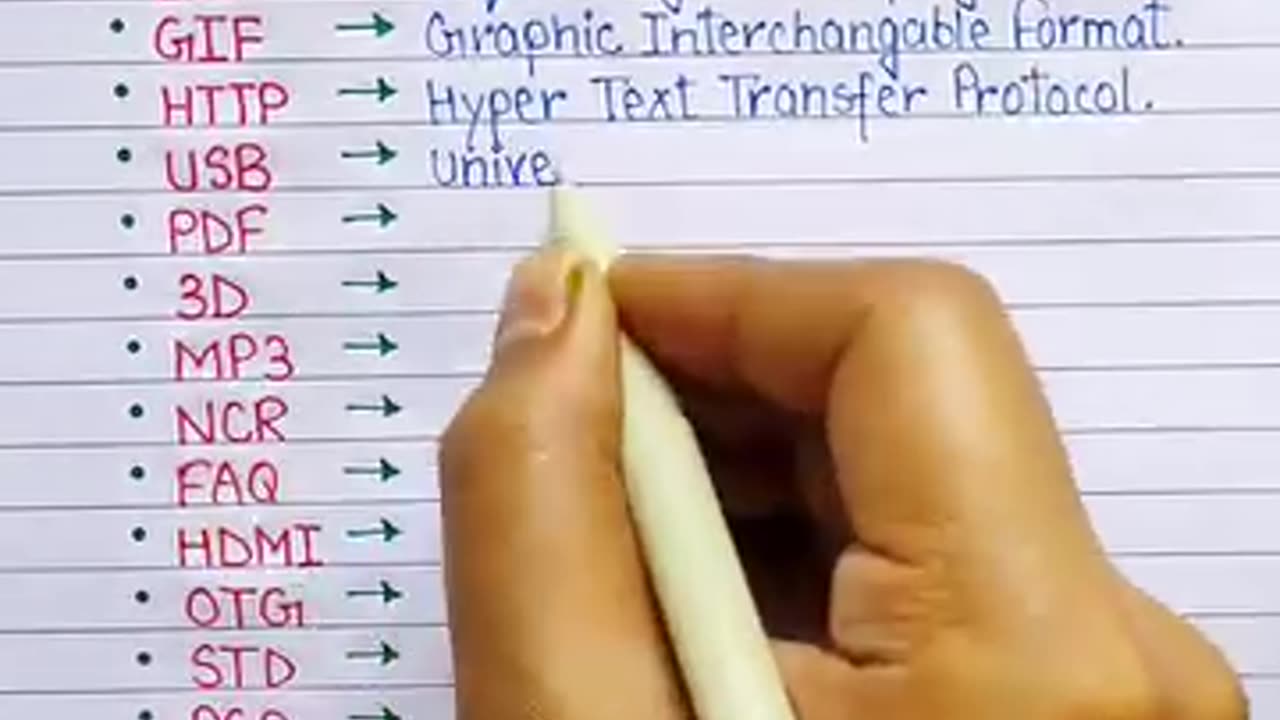 • GIF → Graphic Interchangable Format.
• HTTP → Hyper Text Transfer Protocol.
• USB → Unive
• PDF →
• 3D →
• MP3 →
• NCR →
• FAQ →
• HDMI →
• OTG →
• STD →